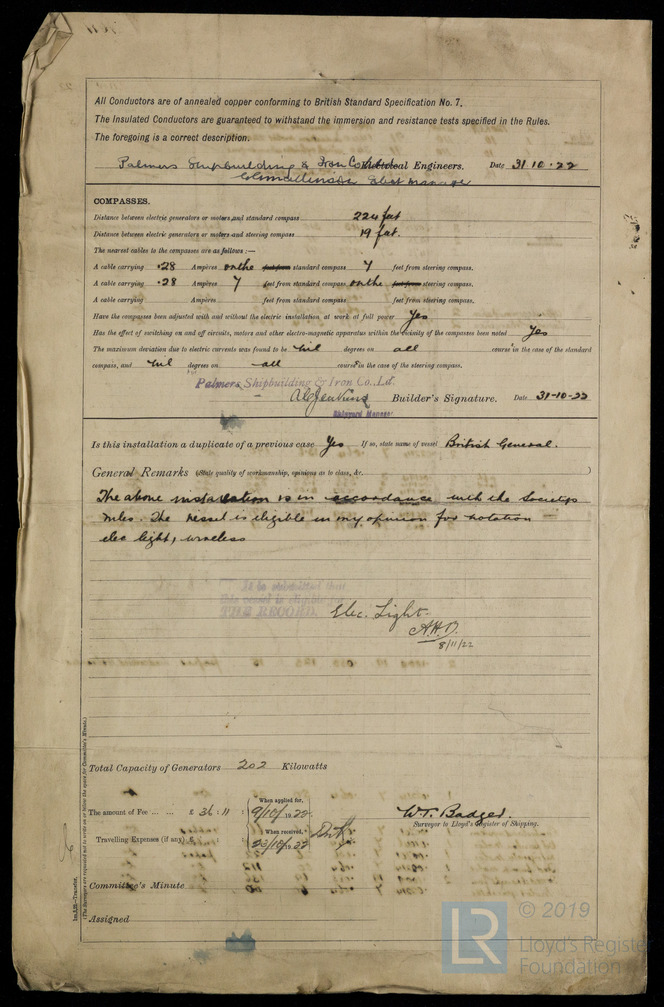 All Conductors are of annealed copper conforming to British Standard Specification No. 7.
The Insulated Conductors are guaranteed to withstand the immersion and resistance tests specified in the Rules.
The foregoing is a correct description.
Palmers Shipbuilding & Iron Co Electrical Engineers. Date 31·10·22
COMPASSES.
Distance between electric generators or motors and standard compass 224 feet
Distance between electric generators or motors and steering compass 19 feet.
The nearest cables to the compasses are as follows:—
A cable carrying ·28 Ampères on the feet from standard compass 7 feet from steering compass.
A cable carrying ·28 Ampères 7 feet from standard compass on the feet from steering compass.
A cable carrying Ampères feet from standard compass feet from steering compass.
Have the compasses been adjusted with and without the electric installation at work at full power Yes
Has the effect of switching on and off circuits, motors and other electro-magnetic apparatus within the vicinity of the compasses been noted Yes
The maximum deviation due to electric currents was found to be Nil degrees on all course in the case of the standard
compass, and Nil degrees on all course in the case of the steering compass.
For Palmers Shipbuilding & Iron Co., Ld.
Builder's Signature. Date 31-10-22
Shipyard Manager.
Is this installation a duplicate of a previous case Yes If so, state name of vessel British General.
General Remarks (State quality of workmanship, opinions as to class, &c. )
The above installation is in accordance with the Societys
rules. The vessel is eligible in my opinion for notation
elec light, wireless
It is submitted that
this vessel is eligible for
THE RECORD. Elec. Light
8/11/22
Total Capacity of Generators 202 Kilowatts
The amount of Fee ... ... £ 36 : 11 : When applied for, 9/10/1922
Travelling Expenses (if any) £ : : When received, 23/10/1922
W.T. Badger
Surveyor to Lloyd's Register of Shipping.
Committee's Minute
Assigned
(The Surveyors are requested not to write on or below the space for Committee's Minute.)
LR © 2019
Lloyd's Register
Foundation